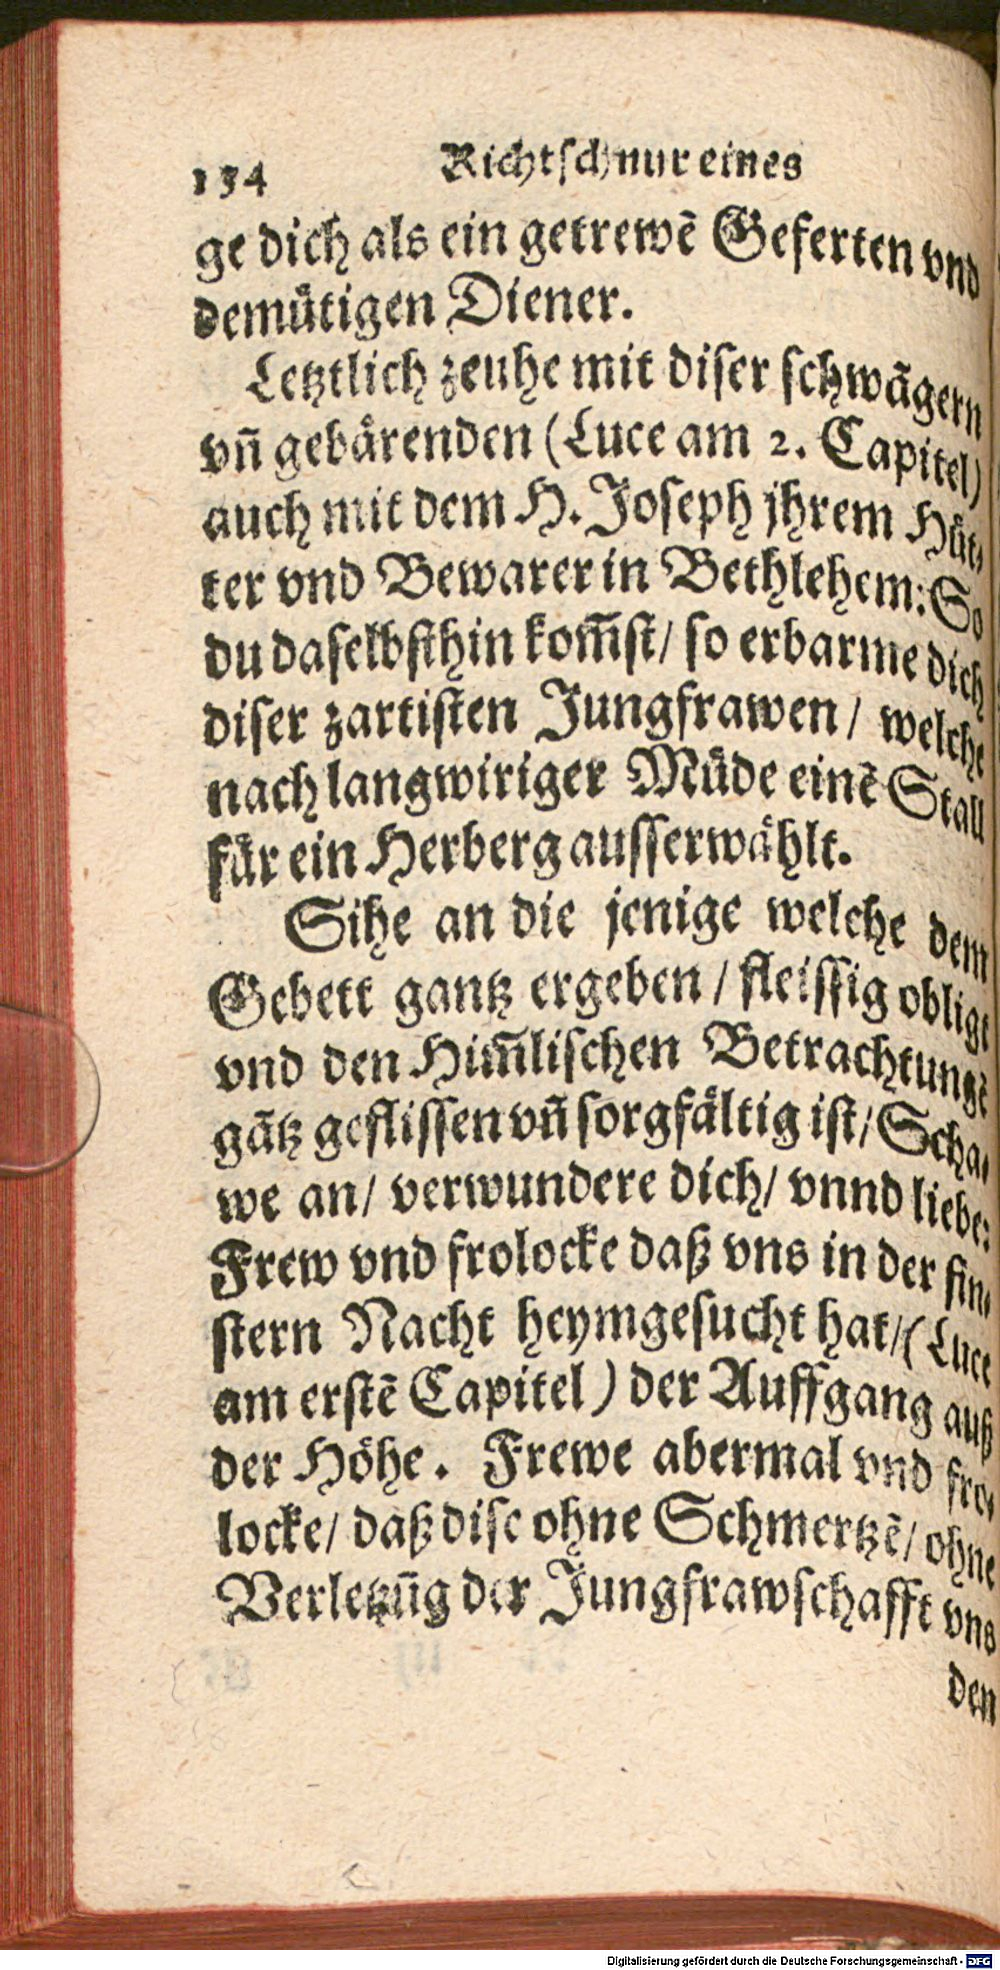 154 Richtschnur eines
ge dich als ein getrewẽ Geferten vnd
demütigen Diener.
Letztlich zeuhe mit diser schwãgern
vñ gebärenden (Luce am 2. Capitel)
auch mit dem H. Joseph jhrem Hüt-
ter vnd Bewarer in Bethlehem: So
du daselbsthin kom̃st/ so erbarme dich
diser zartisten Jungfrawen/ welche
nach langwiriger Müde einẽ Stall
für ein Herberg ausserwählt.
Sihe an die jenige welche dem
Gebett gantz ergeben/ fleissig obligt
vnd den Him̃lischen Betrachtungẽ
gãtz geflissen vñ sorgfältig ist/ Scha-
we an/ verwundere dich/ vnnd liebe:
Frew vnd frolocke daß vns in der fin-
stern Nacht heymgesucht hat/ (Luce
am erstẽ Capitel) der Auffgang auß
der Höhe. Frewe abermal vnd fro-
locke/ daß dise ohne Schmertzẽ/ ohne
Verletzũg der Jungfrawschafft vns
den
Digitalisierung gefördert durch die Deutsche Forschungsgemeinschaft - DFG